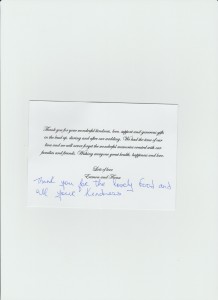 Thank you for your wonderful kindness, love, support and generous gifts
in the lead up, during and after our wedding. We had the time of our
lives and we will never forget the wonderful memories created with our
families and friends. Wishing everyone great health, happiness and love.
Lots of love
Eamon and Fiona
Thank you for the lovely food and
all your kindness